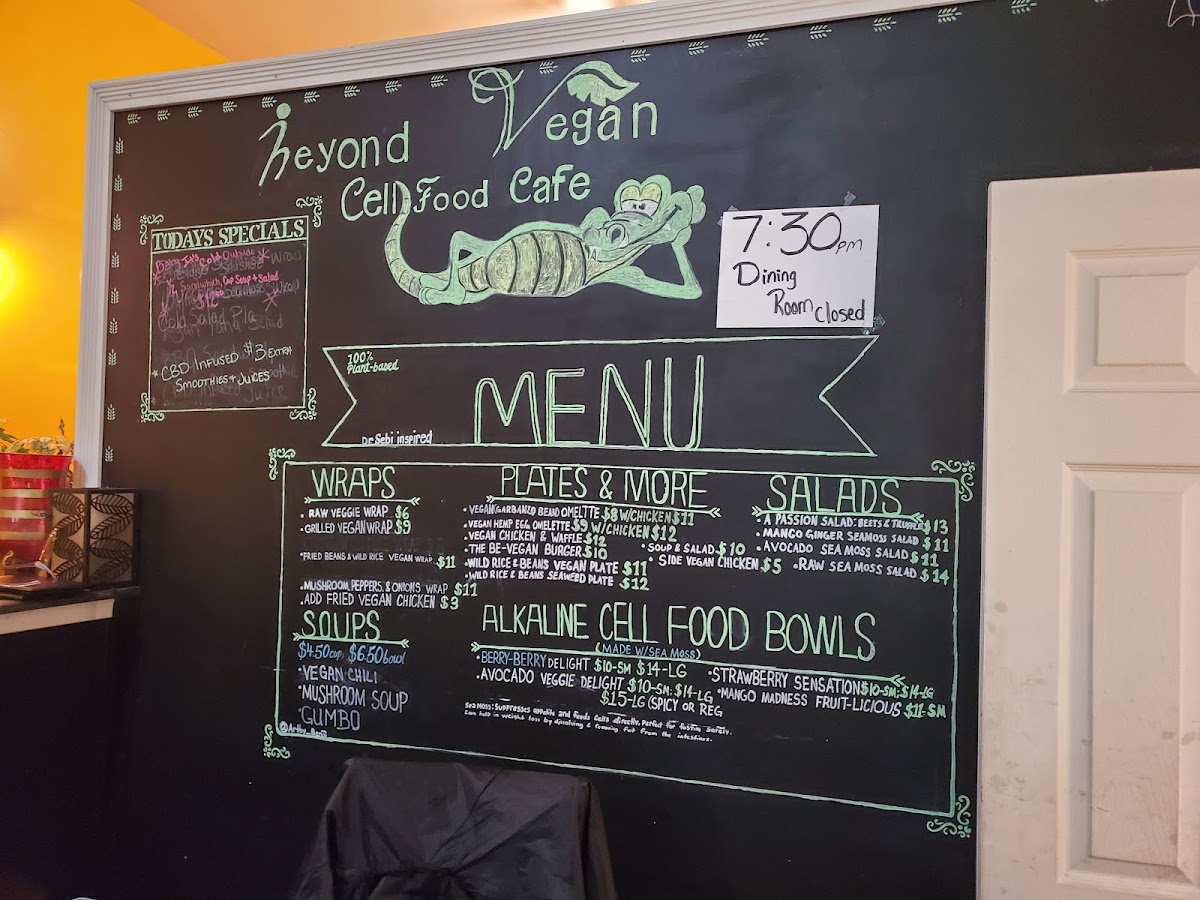 Beyond Vegan
Cell Food Cafe
TODAYS SPECIALS
Cold Outside
Sandwhich, Cup Soup + Salad
$12
Cold Salad
* CBD INFUSED $3 EXTRA
SMOOTHIES + JUICES
7:30pm
Dining
Room Closed
100%
Plant-based
MENU
Dr. Sebi inspired
WRAPS
• RAW VEGGIE WRAP $6
• GRILLED VEGAN WRAP $9
• FRIED BEANS & WILD RICE VEGAN WRAP $11
• MUSHROOM, PEPPERS, & ONIONS WRAP $11
• ADD FRIED VEGAN CHICKEN $3
SOUPS
$4.50 cup, $6.50 bowl
• VEGAN CHILI
• MUSHROOM SOUP
• GUMBO
@Artby_
PLATES & MORE
• VEGAN (GARBANZO BEAN) OMELTTE $8 W/CHICKEN $11
• VEGAN HEMP EGG OMELETTE $9 W/CHICKEN $12
• VEGAN CHICKEN & WAFFLE $12
• THE BE-VEGAN BURGER $10
• WILD RICE & BEANS VEGAN PLATE $11
• WILD RICE & BEANS SEAWEED PLATE $12
• SOUP & SALAD $10
• SIDE VEGAN CHICKEN $5
SALADS
• A PASSION SALAD: BEETS & TRUFFLE $13
• MANGO GINGER SEAMOSS SALAD $11
• AVOCADO SEA MOSS SALAD $11
• RAW SEA MOSS SALAD $14
ALKALINE CELL FOOD BOWLS
(MADE W/SEA MOSS)
• BERRY-BERRY DELIGHT $10-SM $14-LG
• AVOCADO VEGGIE DELIGHT $10-SM; $14-LG
$15-LG (SPICY OR REG
• STRAWBERRY SENSATION $10-SM; $14-LG
• MANGO MADNESS FRUIT-LICIOUS $11-SM
Sea Moss: Suppresses appetite and feeds Cells directly. Perfect for fasting safely.
Can help in weight loss by disolving & removing fat from the intestines.